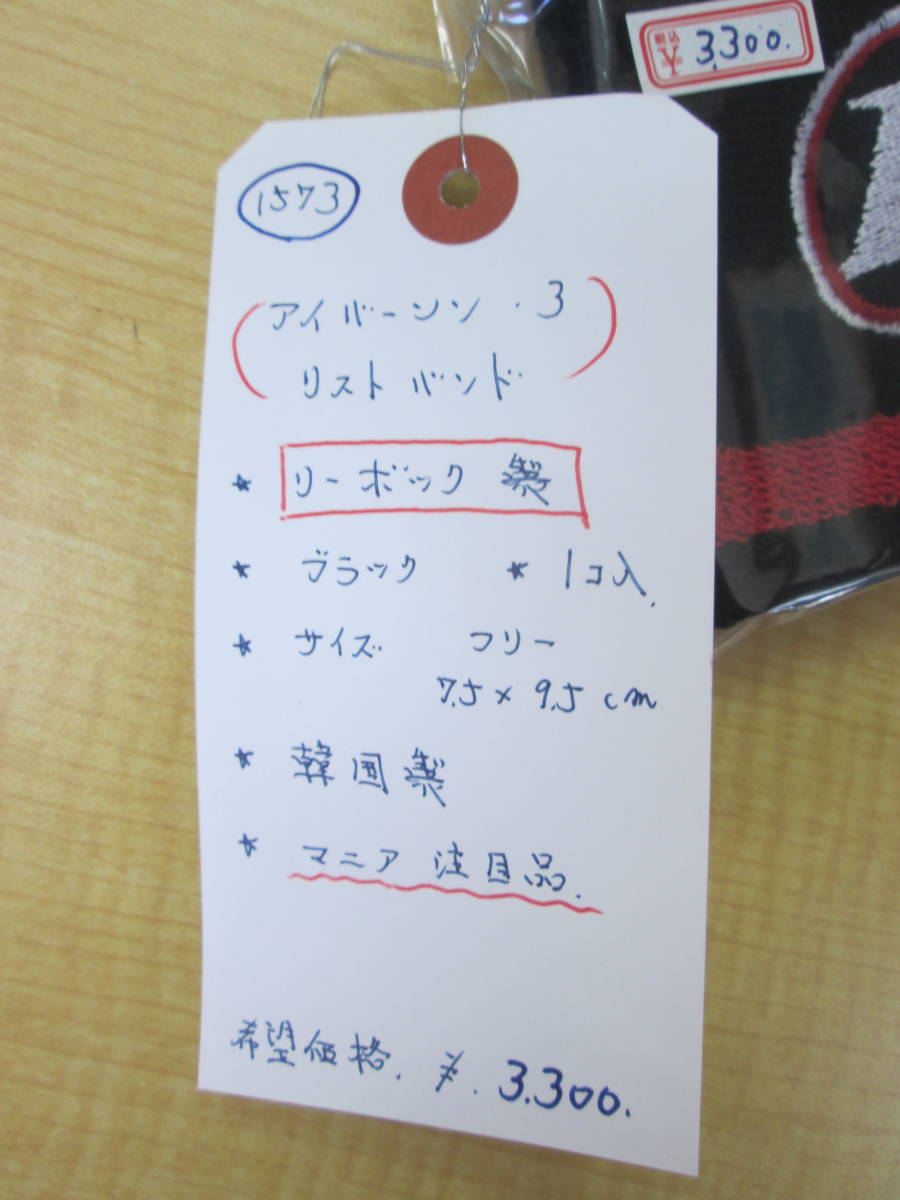 税込
¥ 3,300.
1573
アイバーソン・3
リストバンド
* リーボック 製
* ブラック * 1コ入.
* サイズ フリー
7.5 × 9.5 cm
* 韓国製
* マニア 注目品.
希望価格. ¥. 3.300.